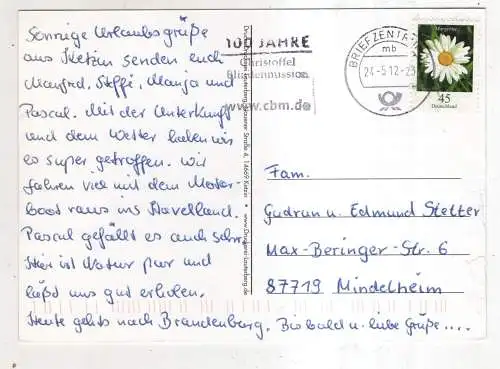 Sonnige Urlaubsgrüße
aus Ketzin senden euch
Manfred, Steffi, Manja und
Pascal. Mit der Unterkunft
und dem Wetter haben wir
es super getroffen. Wir
fahren viel mit dem Motor-
boot raus ins Havelland.
Pascal gefällt es auch sehr.
Hier ist Natur pur und
läßt uns gut erholen.
Heute gehts nach Brandenburg. Bis bald u. liebe Grüße ....
100 JAHRE
Christoffel
Blindenmission
www.cbm.de
BRIEFZENTRUM
mb
24.-5.12-23
45
Deutschland
14669 Ketzin
Fam.
Gudrun u. Edmund Stetter
Max-Beringer-Str. 6
87719 Mindelheim